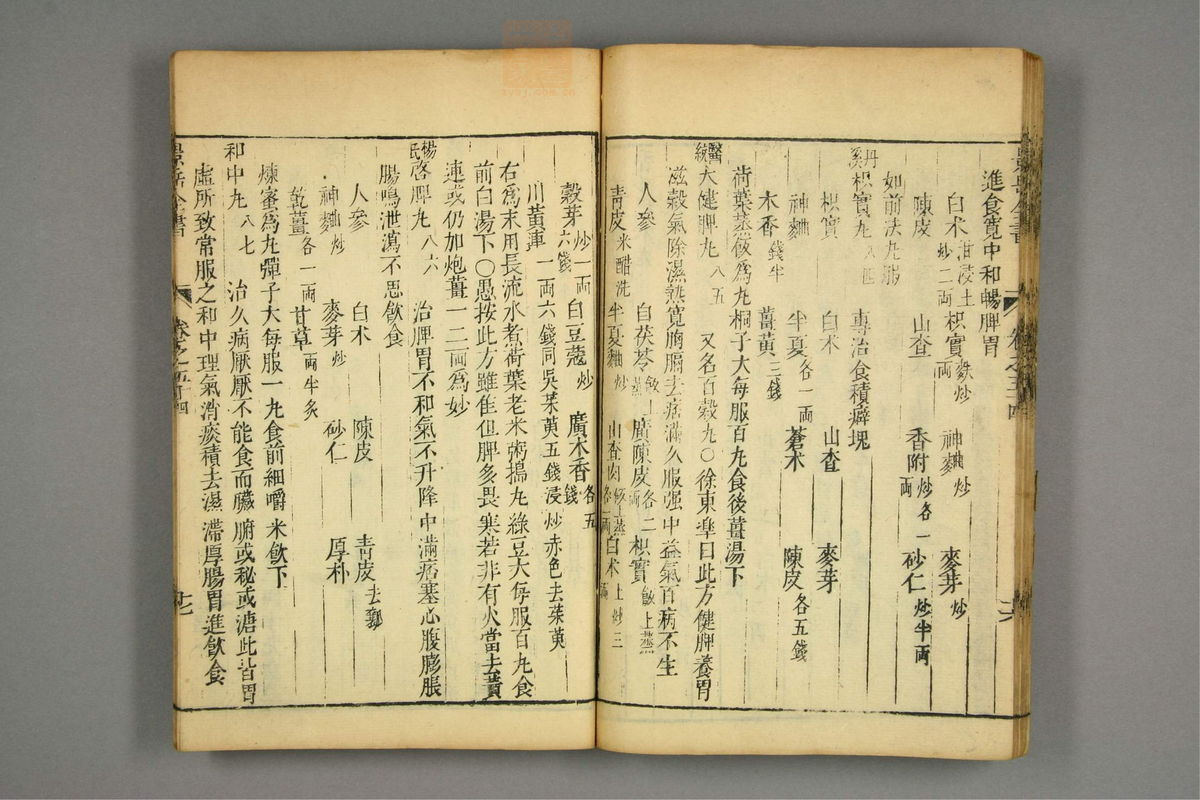 進食寬中和暢脾胃
白朮甘浸土炒二両 枳實麩炒一両 神麯炒 麥芽炒
陳皮 山查 香附炒各一両 砂仁炒半両
如前法丸服
丹溪枳實丸 專治食積癖塊
枳實 白朮 山查 麥芽
神麯 半夏各一両 蒼朮 陳皮各五錢
木香錢半 薑黃三錢
荷葉蒸飯為丸桐子大每服百丸食後薑湯下
醫統大健脾丸 八五 又名百穀丸〇徐東皐曰此方健脾養胃
滋穀氣除濕熱寬胸膈去痞滿久服强中益氣百病不生
人參 白茯苓飯上蒸 廣陳皮各二両 枳實飯上蒸
青皮米醋洗 半夏麯炒 山查肉飯上蒸各一両 白朮土炒三両
穀芽炒一両六錢 白豆蔻炒 廣木香各五錢
川黃連一両六錢同吳茱萸五錢浸炒赤色去茱萸
右為末用長流水煮荷葉老米粥搗丸綠豆大每服百丸食
前白湯下〇愚按此方雖佳但脾多畏寒若非有火當去黃
連或仍加炮薑一二両為妙
楊氏啓脾丸 八六 治脾胃不和氣不升降中滿痞塞心腹膨脹
腸鳴泄瀉不思飲食
人參 白朮 陳皮 青皮去瓤
神麯炒 麥芽炒 砂仁 厚朴
乾薑各一両 甘草両半炙
煉蜜為丸彈子大每服一丸食前細嚼米飲下
和中丸 八七 治久病厭厭不能食而臟腑或秘或溏此皆胃
虛所致常服之和中理氣消痰積去濕滯厚腸胃進飲食
景岳全書 卷之五十四 十七